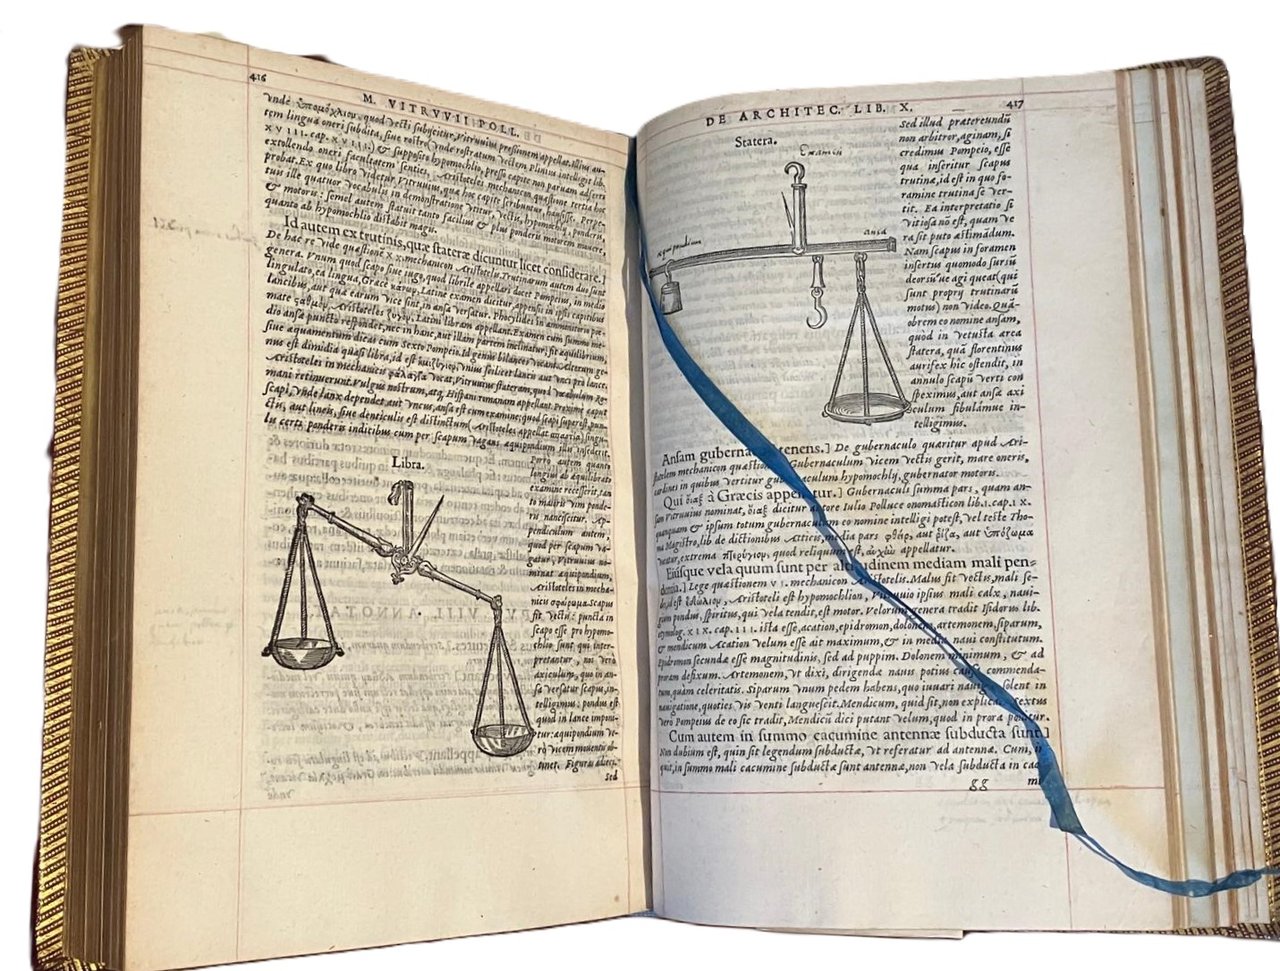 416
M. VITRVVII POLL.
vnde ὑπομόχλιον, quod vecti subijcitur, Vitruuius pressionem appellat. Illius au-
tem lingua oneri subdita, siue rostro (vnde rostratum vectem Plinius intelligit lib.
XVIII. cap. XVIII) & supposito hypomochlio, presso capite non paruam adserre
extollendo oneri facultatem senties. Aristoteles mechanicon quæstione tertia hoc
probat. Ex quo libro videtur Vitruuius, quæ hoc capite scribuntur, hausisse. Porrò
tus ille quatuor vocabulis in demonstratione vtitur, vectis, hypomochlij, ponderis,
& motoris: semel autem statuit tanto facilius & plus ponderis motorem mouere,
quanto ab hypomochlio distabit magis.
Id autem ex trutinis, quæ stateræ dicuntur, licet considerare.]
De hac re vide quæstionē XX. mechanicon Aristotelis. Trutinarum autem duo sunt
genera. Vnum, quod scapo siue iugo, quod librile appellari docet Pompeius, in medio
lingulato, ea lingua, Græcè κανών, Latinè examen dicitur, appensis in ipsis capitibus
lancibus, aut quæ earum vice sint, in ansa versatur. Phocylides in ammonitorio poe-
mate σαθμὸν, Aristoteles ζυγὸν, Latini libram appellant. Examen cum summo me-
dio ansæ puncto respondet, nec in hanc, aut illam partem inclinatur, sit æquilibrium,
siue æquamentum dicas cum Sexto Pompeio. Id genus bilancem vocant. Alterum ge-
nus est dimidia quasi libra, id est ἡμιζύγιον, vnius scilicet lancis aut vnci pro lance.
Aristoteles in mechanicis φάλαγγα vocat, Vitruuius stateram, quod vocabulum Ro-
mani retinuerunt. Vulgus nostrum, atq; Hispani romanam appellant. Proximè caput
scapi, vnde lanx dependet aut vncus, ansa est cum examine: quod scapi superest pun-
ctis, aut lineis, siue denticulis est distinctum (Aristoteles appellat σπαρτία) singu-
lis certis ponderis indicibus cum per scapum vagans æquipondium ijs insederit.
Libra.
Porrò autem quanto
longius ab æquilibrato
examine recesserit, tan
to maioris vim ponde-
ris nanciscitur. Ap-
pendiculum autem,
quod per scapum va-
gatur, Vitruuius no-
minat æquipondium,
Aristoteles in mecha-
nicis σφαίρωμα. Scapus
sit vectis: puncta in
scapo esse pro hypomo-
chlio sunt qui inter-
pretantur, nos verò
axiculum, quo in an-
sa versatur scapus, in-
telligimus: pondus est
quod in lance imponi-
tur: æquipondium ve-
rò vicem mouentis ob-
tinet. Figuras adieci.
Sed
DE ARCHITEC. LIB. X.
417
Statera.
Examen
æquipondium
ansa
Sed illud prætereundū
non arbitror, aginam, si
credimus Pompeio, esse
qua inseritur scapus
trutinæ, id est in quo fo-
ramine trutina se ver-
tit. Ea interpretatio si
vitiosa nō est, quam ve
ra sit puto æstimādum.
Nam scapus in foramen
insertus quomodo sursū
deorsū ue agi queat (qui
sunt proprij trutinarū
motus) non video. Quā-
obrem eo nomine ansam,
quod in vetusta ærea
statera, quā florentinus
aurifex hîc ostendit, in
annulo scapū verti con
speximus, aut ansæ axi
culum fibulámue in-
telligimus.
Ansam gubernaculi tenens.] De gubernaculo quæritur apud Ari-
stotelem mechanicon quæstione Gubernaculum vicem vectis gerit, mare oneris,
cardines in quibus vertitur gubernaculum hypomochlij, gubernator motoris.
Qui οἴαξ à Græcis appellatur.] Gubernaculi summa pars, quam an-
sam Vitruuius nominat, οἴαξ dicitur autore Iulio Polluce onomasticon lib. 1. cap. IX.
quanquam & ipsum totum gubernaculum eo nomine intelligi potest, vel teste Tho-
ma Magistro, lib. de dictionibus Atticis, media pars φθεὶρ, aut ῥίζα, aut ὑπόζωμα
vocatur, extrema πτερύγιον, quod reliquum est, αὐχὴν appellatur.
Eiúsque vela quum sunt per altitudinem mediam mali pen-
dentia.] Lege quæstionem VI. mechanicon Aristotelis. Malus sit vectis, mali se-
des, id est ἑδώλιον, Aristoteli est hypomochlion, Vitruuio ipsius mali calx, naui-
gium pondus, spiritus, qui vela tendit, est motor. Velorum genera tradit Isidorus lib.
etymolog. XIX. cap. III. ista esse, acation, epidromon, dolonem, artemonem, siparum,
& mendicum Acation velum esse ait maximum, & in media naui constitutum.
Epidromon secundæ esse magnitudinis, sed ad puppim. Dolonem minimum, & ad
proram defixum. Artemonem, vt dixi, dirigendæ nauis potius causa commenda-
tum, quam celeritatis. Siparum vnum pedem habens, quo iuuari nauigia solent in
nauigatione, quoties vis venti languescit. Mendicum, quid sit, non explicat. Sextus
verò Pompeius de eo sic tradit, Mendicii dici putant velum, quod in prora ponitur.
Cum autem in summo cacumine antennæ subducta sunt.]
Non dubium est, quin sit legendum subductæ, vt referatur ad antennæ. Cum, in
quit, in summo mali cacumine subductæ sunt antennæ, non vela subducta in cacu
gg